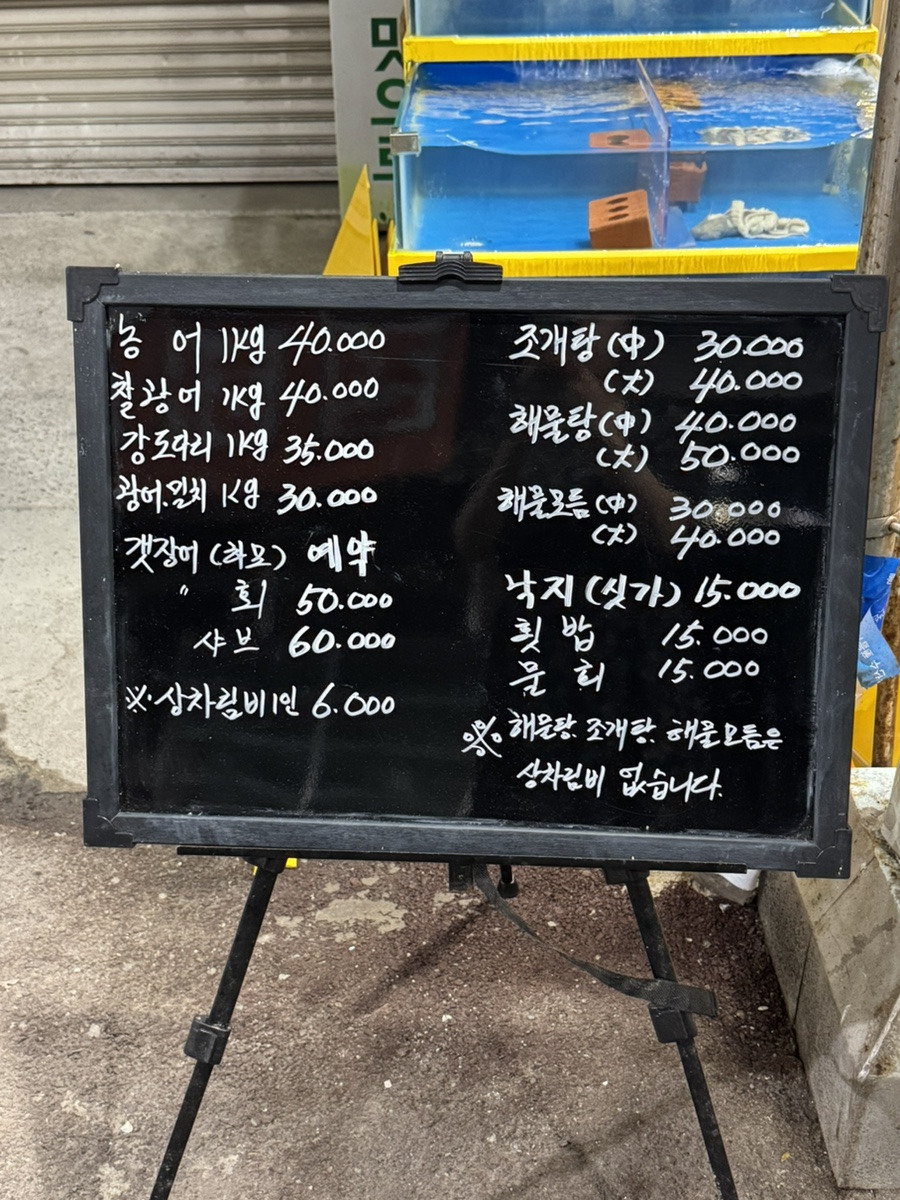 농 어 1kg 40.000
찰광어 1kg 40.000
강도다리 1kg 35.000
광어.밀치 1kg 30.000
갯장어 (하모) 예약
" 회 50.000
샤브 60.000
※.상차림비 1인 6.000
조개탕 (中) 30.000
(大) 40.000
해물탕 (中) 40.000
(大) 50.000
해물모듬 (中) 30.000
(大) 40.000
낙지 (싯가) 15.000
횟 밥 15.000
물 회 15.000
※ 해물탕. 조개탕. 해물모듬은
상차림비 없습니다.